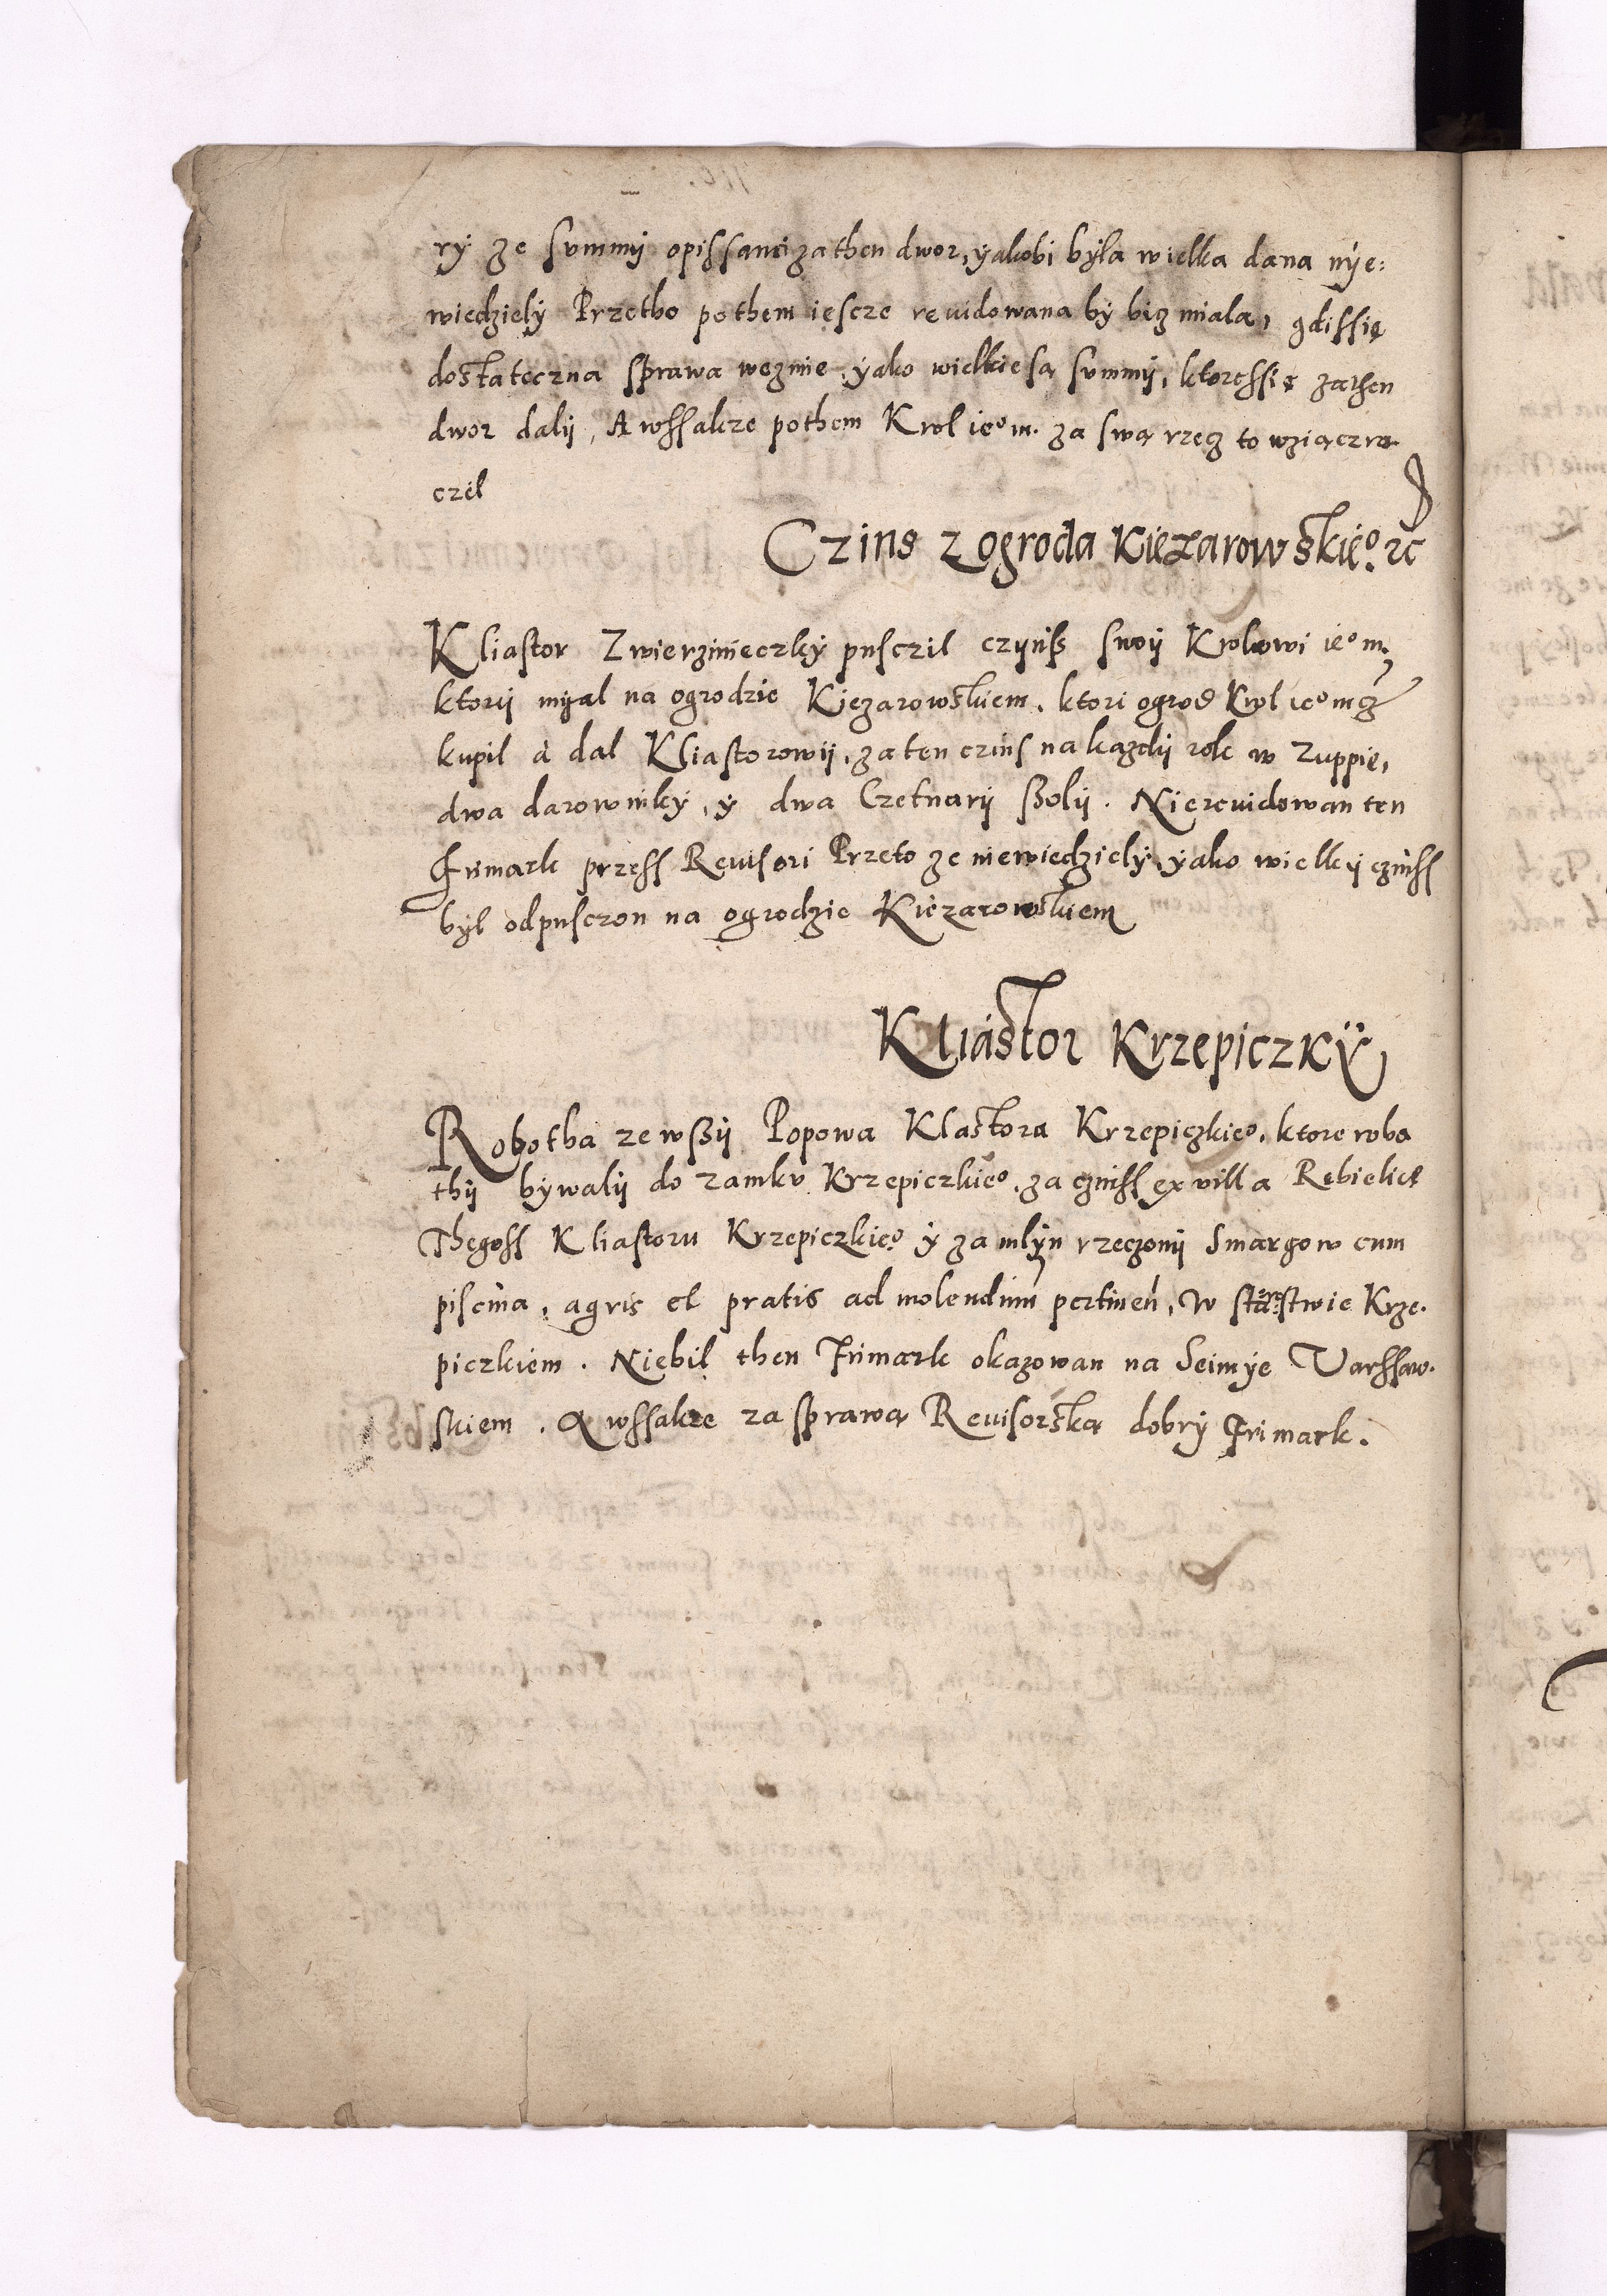 rÿ ze summÿ opissanei za then dwor, ÿakobi bÿla wielka dana nÿe:
wiedzielÿ Przetho pothem iescze reuidowana bÿ bicz miala, gdissię
dostateczna sprawa wezmie, ÿako wielkie są summÿ, ktoressię zathen
dwor dalÿ, A wssakze pothem Krol ieo m. za swą rzecz to wziącz ra-
czel
Czins z ogroda Kiezarowskieo. etc
Kliastor Zwierzinieczkÿ pusczil czÿnß swoÿ Krolowi ieo m.
ktorÿ mÿal na ogrodzie Kiezarowskiem, ktori ogrod Krol ieo mcz
kupil à dal Kliastorowÿ, za ten czins na kazdÿ rok w Zuppie,
dwa darownikÿ, ÿ dwa Czetnarÿ ßolÿ. Nie reuidowan ten
Frimark przess Reuisori Przeto ze niewiedzielÿ, ÿako wielkÿ czinss
bÿl odpusczon na ogrodzie Kiezarowskiem
Kliastor Krzepiczkÿ
Robotha ze wßÿ Popowa Klastora Krzepiczkieo, ktore robo
thÿ bÿwalÿ do zamku Krzepiczkieo, za czinss ex villa Rebielice
Thegoss Kliastoru Krzepiczkieo ÿ za mlÿn rzeczonÿ Smargow cum
piscina, agris et pratis ad molendinu pertinen, w starostwie Krze-
piczkiem. Niebil then Frimark okazowan na Seimÿe Varssaw-
skiem. A wssakze za sprawą Reuisorską dobrÿ Frimark.